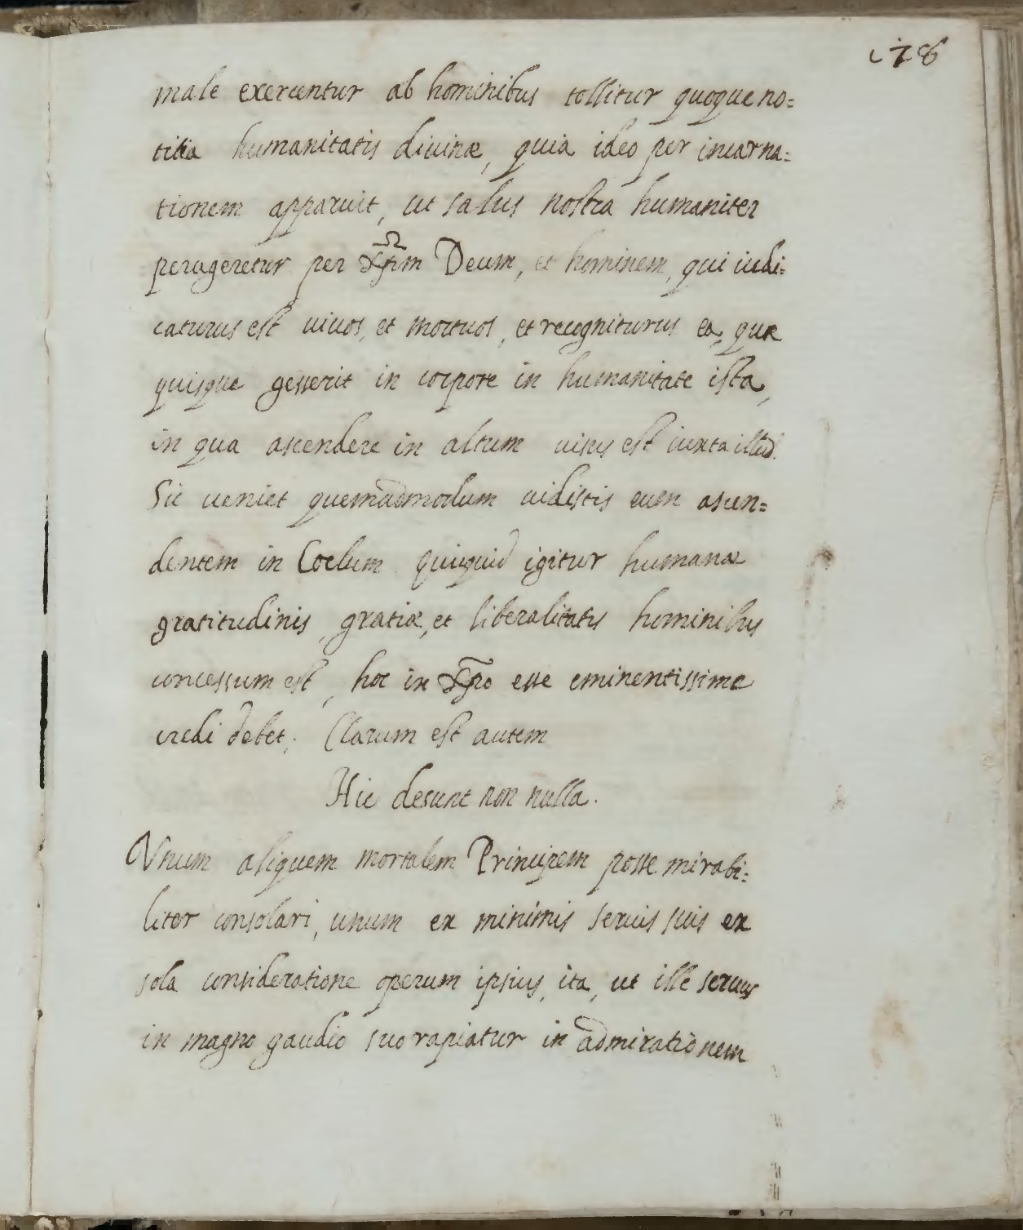 178
male exercentur ab hominibus tollitur quoque no=
titia humanitatis divinæ, quia ideo per incarna=
tionem apparuit, ut salus nostra humaniter
perageretur per Xp̃um Deum, et hominem, qui iudi=
caturus est vivos, et mortuos, et recogniturus ea, quæ
quisque gesserit in corpore in humanitate ista,
in qua ascendere in altum visus est iuxta illud.
Sic veniet quemadmodum vidistis eum ascen=
dentem in Coelum quicquid igitur humanæ
gratitudinis, gratiæ, et liberalitatis hominibus
concessum est, hoc in Xp̃o esse eminentissime
credi debet. Clarum est autem
Hic desunt non nulla.
Vnum aliquem mortalem Principem posse mirabi=
liter consolari, unum ex minimis servis suis ex
sola consideratione operum ipsius, ita, ut ille servus
in magno gaudio suo rapiatur in admirationem